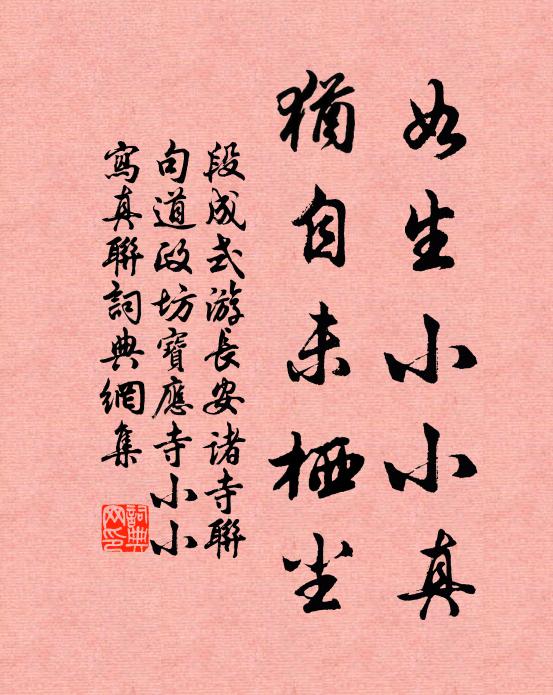 如生小小真
猶自未栖尘
段成式游長安诸寺聯
句道政坊寶應寺小小
寫真聯詞典網集
詞典网印